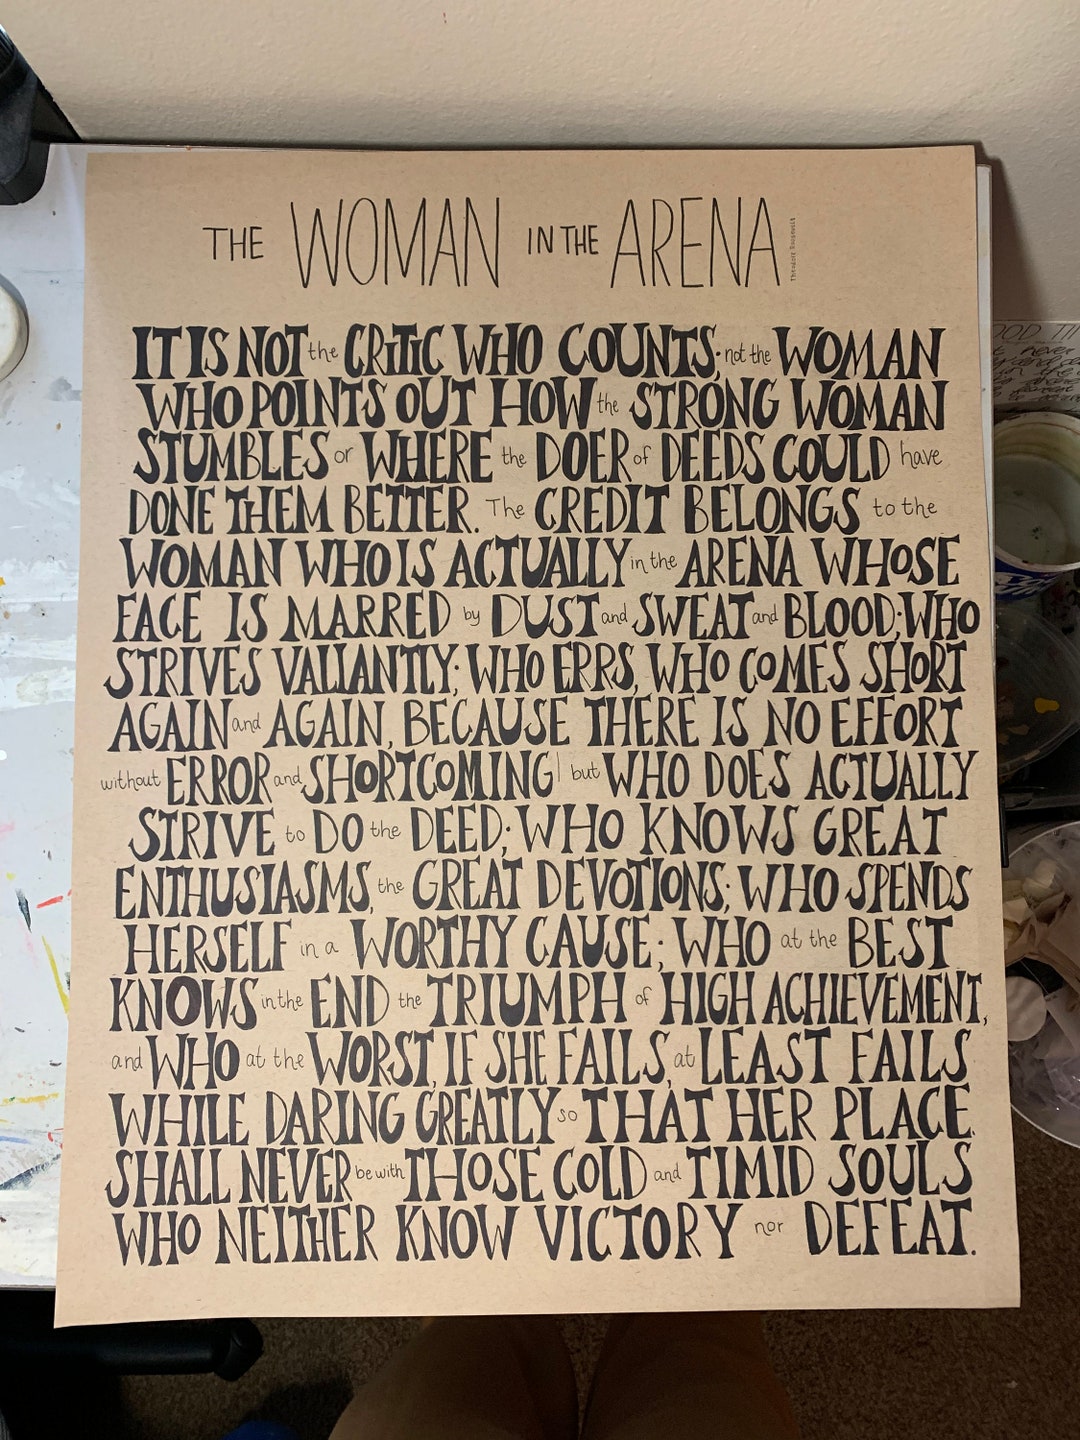 THE WOMAN IN THE ARENA
Theodore Roosevelt
IT IS NOT the CRITIC WHO COUNTS; not the WOMAN
WHO POINTS OUT HOW the STRONG WOMAN
STUMBLES or WHERE the DOER of DEEDS COULD have
DONE THEM BETTER. The CREDIT BELONGS to the
WOMAN WHO IS ACTUALLY in the ARENA WHOSE
FACE IS MARRED by DUST and SWEAT and BLOOD; WHO
STRIVES VALIANTLY; WHO ERRS, WHO COMES SHORT
AGAIN and AGAIN, BECAUSE THERE IS NO EFFORT
without ERROR and SHORTCOMING; but WHO DOES ACTUALLY
STRIVE to DO the DEED; WHO KNOWS GREAT
ENTHUSIASMS, the GREAT DEVOTIONS; WHO SPENDS
HERSELF in a WORTHY CAUSE; WHO at the BEST
KNOWS in the END the TRIUMPH of HIGH ACHIEVEMENT,
and WHO at the WORST, IF SHE FAILS, at LEAST FAILS
WHILE DARING GREATLY so THAT HER PLACE
SHALL NEVER be with THOSE COLD and TIMID SOULS
WHO NEITHER KNOW VICTORY nor DEFEAT.